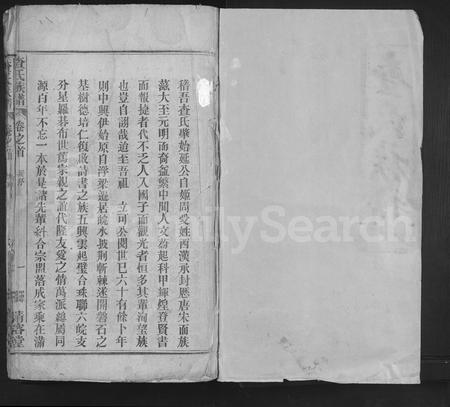 稽吾查氏肇始延公自姬周受姓西漢承封歷唐宋而族
蕃大至元明而裔益繁中間人文蔚起科甲輝煌登賢書
而報捷者代不乏人入國子而觀光者恒多其輩洵望族
也豈自詡哉迨至吾祖 立可公閱世已六十有餘卜年
則中興伊始原自浮梁遷居皖水披荊斬棘逐開磐石之
基樹德培仁復啟詩書之族五興雲起璧合珠聯六皖支
分星羅碁布世篤宗親之誼代隆友愛之情萬派總屬同
源百年不忘一本於是諸先輩科合宗盟落成家乘在滿
查氏族譜 卷之首 一 清容堂
FamilySearch